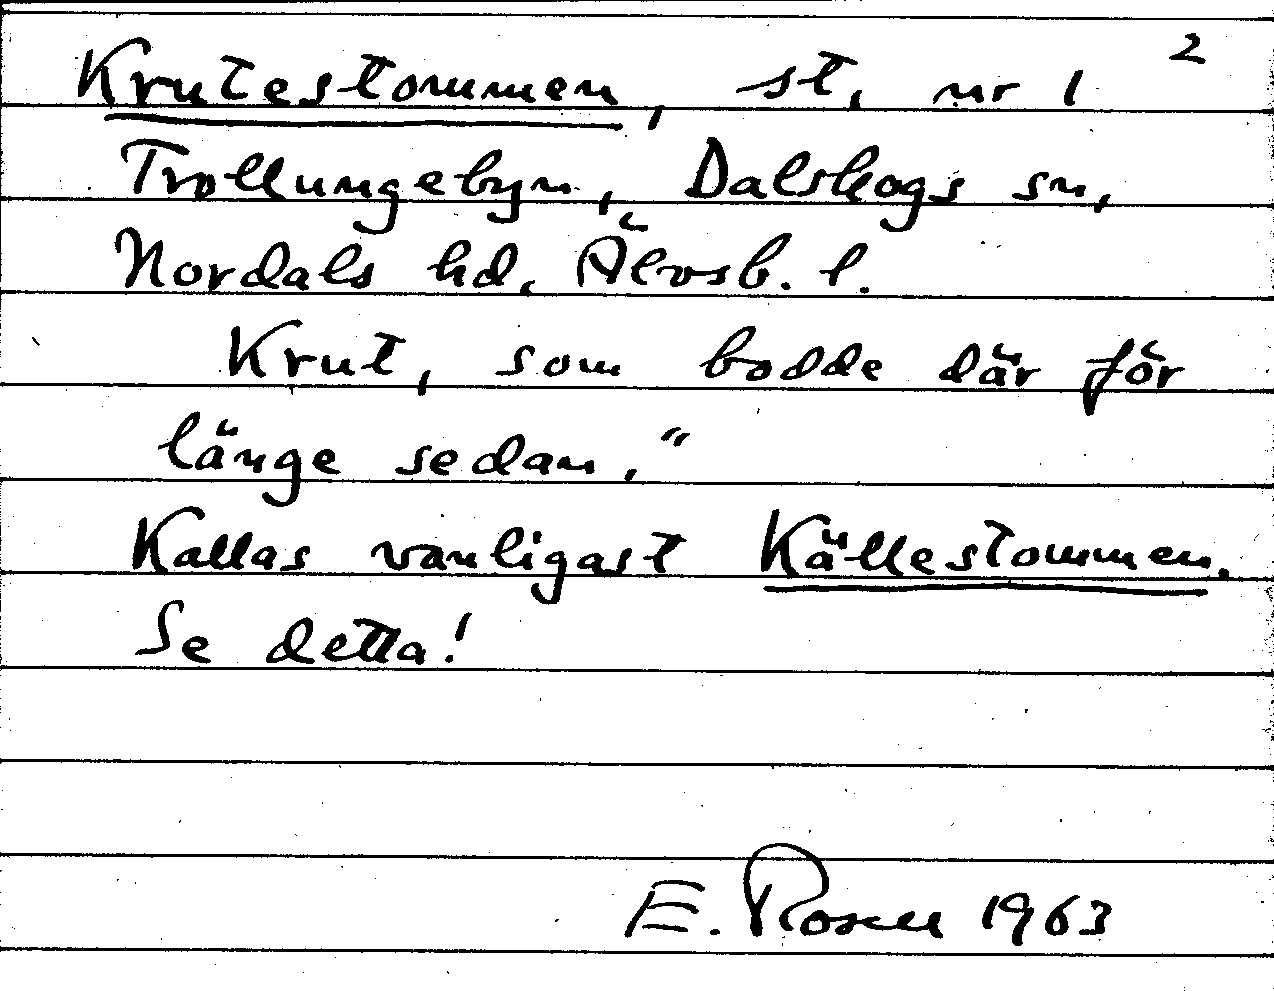 2
Krutestommen, st. nr 1
Trollungebyn, Dalskogs sn,
Nordals hd. Älvsb. l.
Krut, som bodde där för
länge sedan."
Kallas vanligast Källestommen.
Se detta!
E. Rosen 1963